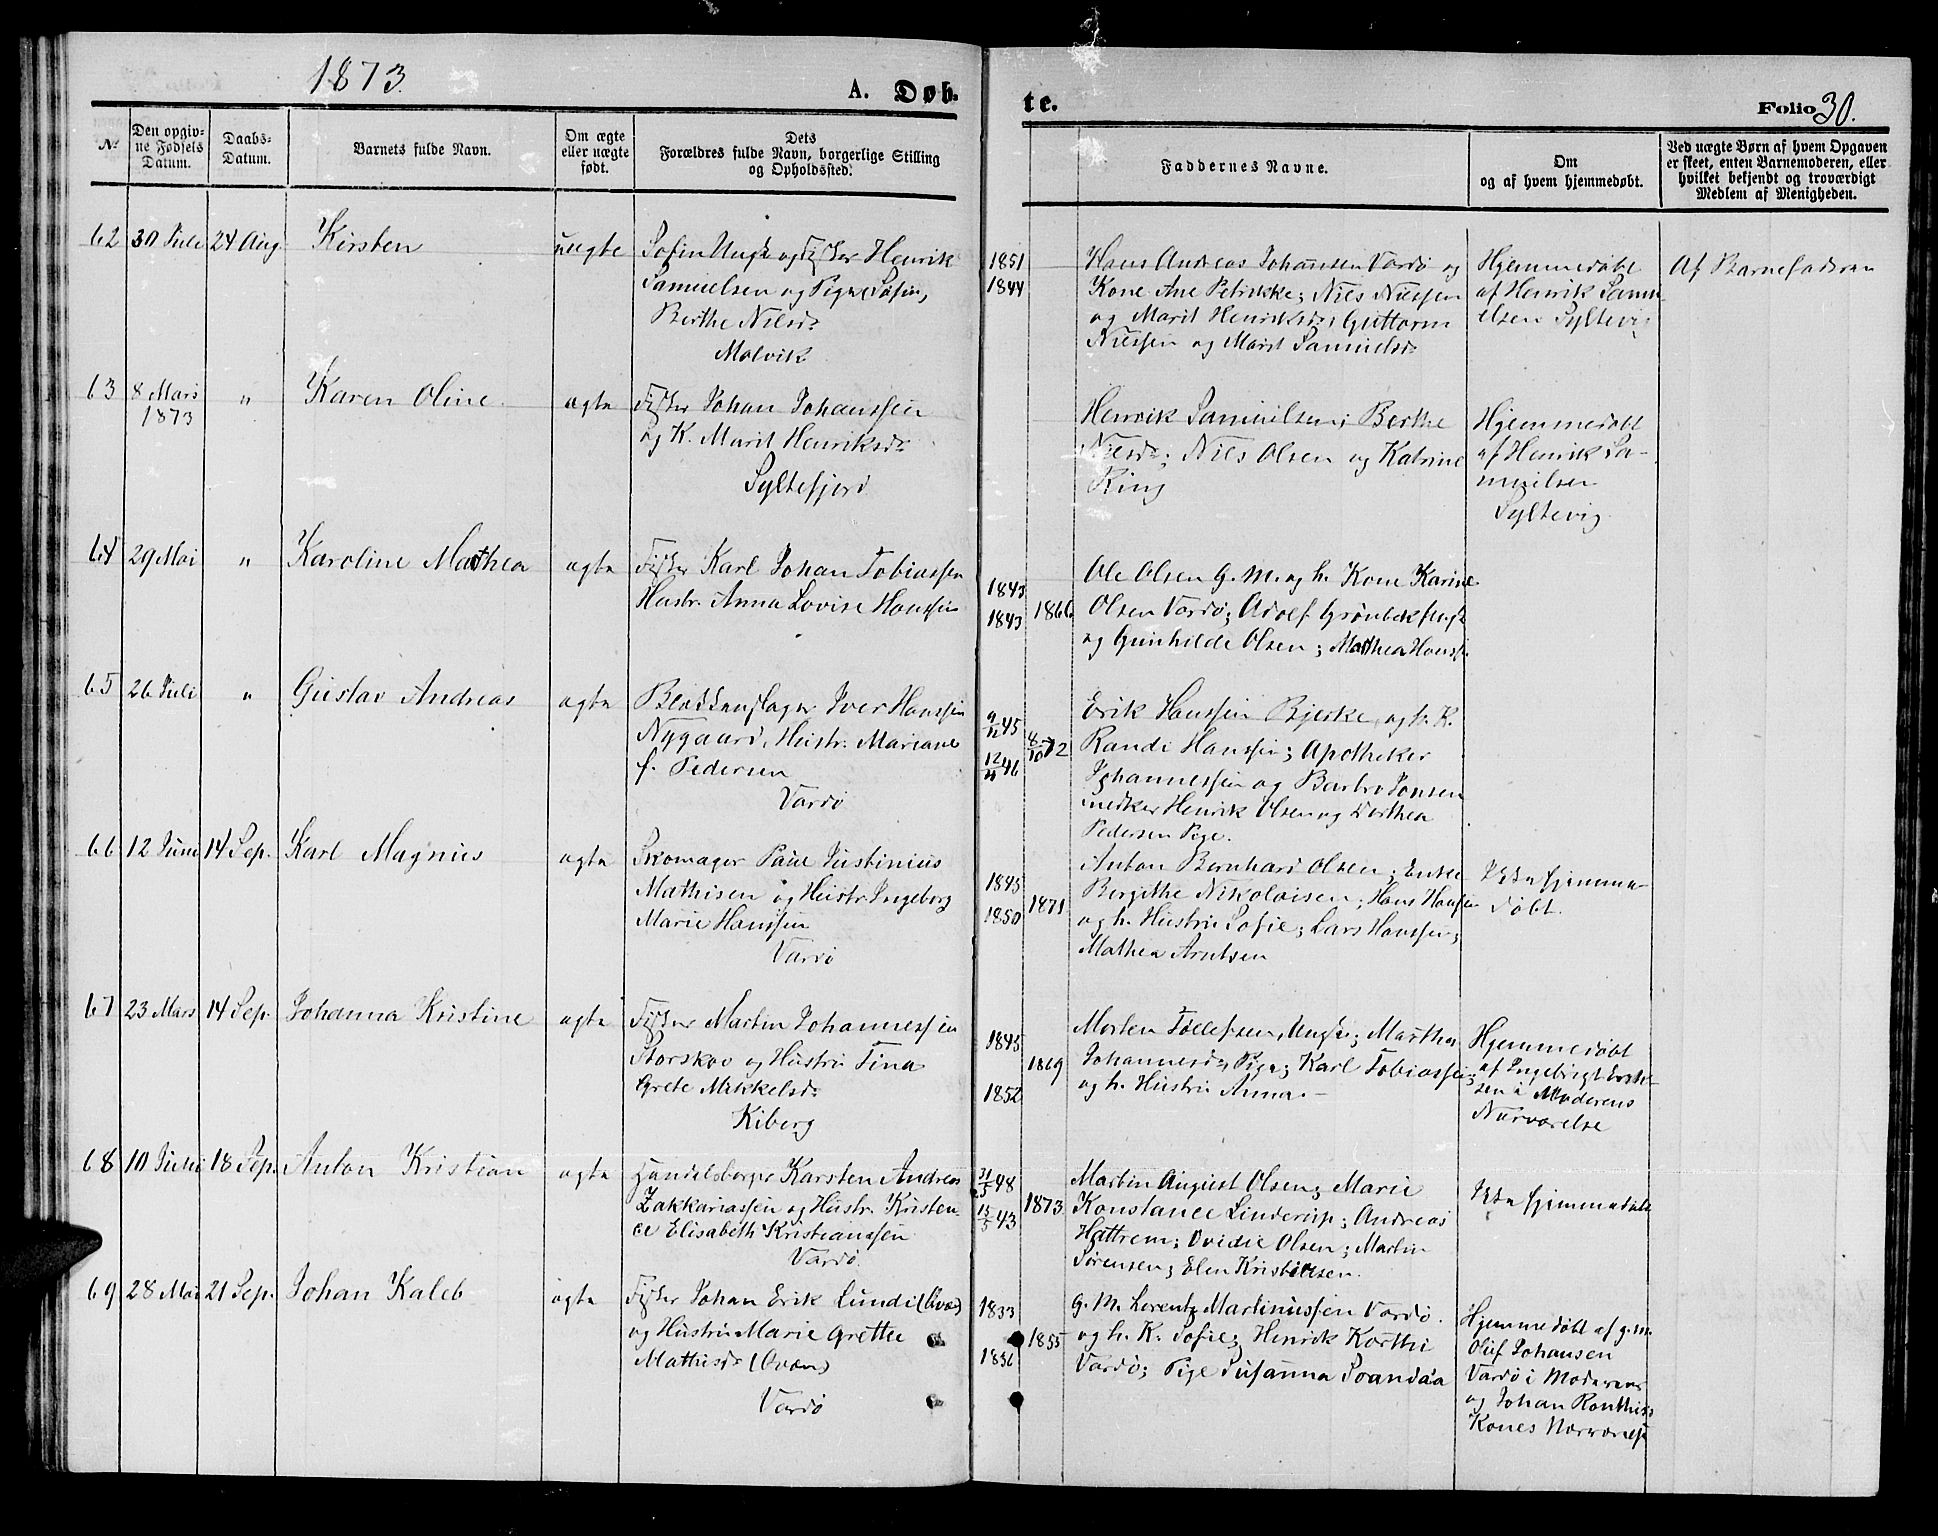 1873.
A. Døb-
te.
Folio 30.
No
Den opgiv-
ne Fødsels
Datum.
Daabs-
Datum.
Barnets fulde Navn.
Om ægte
eller uægte
født.
Dets
Forældres fulde Navn, borgerlige Stilling
og Opholdssted.
Faddernes Navne.
Om
og af hvem hjemmedøbt.
Ved uægte Børn af hvem Opgaven
er skeet, enten Barnemoderen, eller
hvilket bekjendt og troværdigt
Medlem af Menigheden.
62 30 Juli 24 Aug. Kirsten uægte
Fisker Henrik
Samuelsen og Pige
Berthe Nilsdr
Molvik
1851
1844
Hans Andreas Johansen Vardø og
Kone Ane Petrikke; Nils Nilssen
og Marit Henriksdr; Guttorm
Nilssen og Marit Samuelsdr
Hjemmedøbt
af Henrik Samu-
elsen Syltevig
Af Barnefaderen
63 8 Mars
1873
" Karen Oline ægte
Fisker Johan Johanssen
og K. Marit Henriksdr
Syltefjord
Henrik Samuelsen; Berthe
Nilsdr; Nils Olsen og Katrine
Ring
Hjemmedøbt
af Henrik Sa-
muelsen
Syltevig
64 29 Mai " Karoline Mathea ægte
Fisker Karl Johan Tobiassen
Hustr. Anna Lovise Hanssen
1843
1843
1866
Ole Olsen G. M. og h. Kone Karine
Olsen Vardø; Adolf Grønbek
og Gunhilde Olsen; Mathea Hanss.
65 26 Juli " Gustav Andreas ægte
Blikkenslager Iver Hanssen
Nygaard, Hustr. Mariane
f. Pedersen
Vardø
9/11 45
12/4 46
8/10 72
Erik Hanssen Bjerke, og h. K.
Randi Hanssen; Apotheker
Johannessen og Barbro Jonsen
Henrik Olsen og Dorthea
Pedersen Pige.
66 12 Juni 14 Sep. Karl Magnus ægte
Skomager Paul Justinius
Mathisen og Hustr. Ingeborg
Marie Hanssen
Vardø
1845
1850
1871
Anton Bernhard Olsen; Enke
Bergithe Nikolaisen; Hans Hansen
og h. Hustru Sofie; Lars Hanssen;
Mathea Arntsen
Ikke hjemme-
døbt.
67 23 Mars 14 Sep. Johanna Kristine ægte
Fisker Martin Johannessen
Storskov og Hustru Tina
Grete Mikkelsdr
Kiberg
1845
1852
1869
Morten Tollefsen, Ungk.; Marthe
Johannesdr, Pige; Karl Tobiassen;
og h. Hustru Anna.
Hjemmedøbt
af Ingebrigt
sen i Moderens
Nærværelse
68 10 18 Sep. Anton Kristian ægte
Handelsborger Karsten Andreas
Zakkariassen og Hustr. Kristen-
ce Elisabeth Kristianssen
Vardø.
31/5 48
15/5 43
1873
Martin August Olsen; Marie
Konstance Linderup; Andreas
Hattrem; Ovidie Olsen; Martin
Sørensen; Elen Kristensen.
Ikke hjemmedøbt
69 28 Mai 21 Sep. Johan Kaleb ægte
Fisker Johan Erik Lundi (Qvæn)
og Hustru Marie Grethe
Mathisdr (Qvæn)
Vardø
1833
1836
1855
G. M. Lorentz Martinussen Vardø.
og h. K. Sofie; Henrik Korthi
Vardø; Pige Susanna
Hjemmedøbt af g. m.
Oluf Johansen
Vardø i Moderens
og Johan
Kones Nærværelse